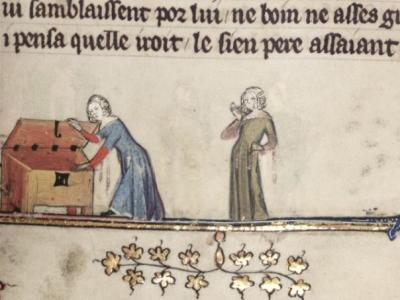 samblaissent por lui / ne bom ne asses
i pensa quelle iroit / le sien pere assaiant